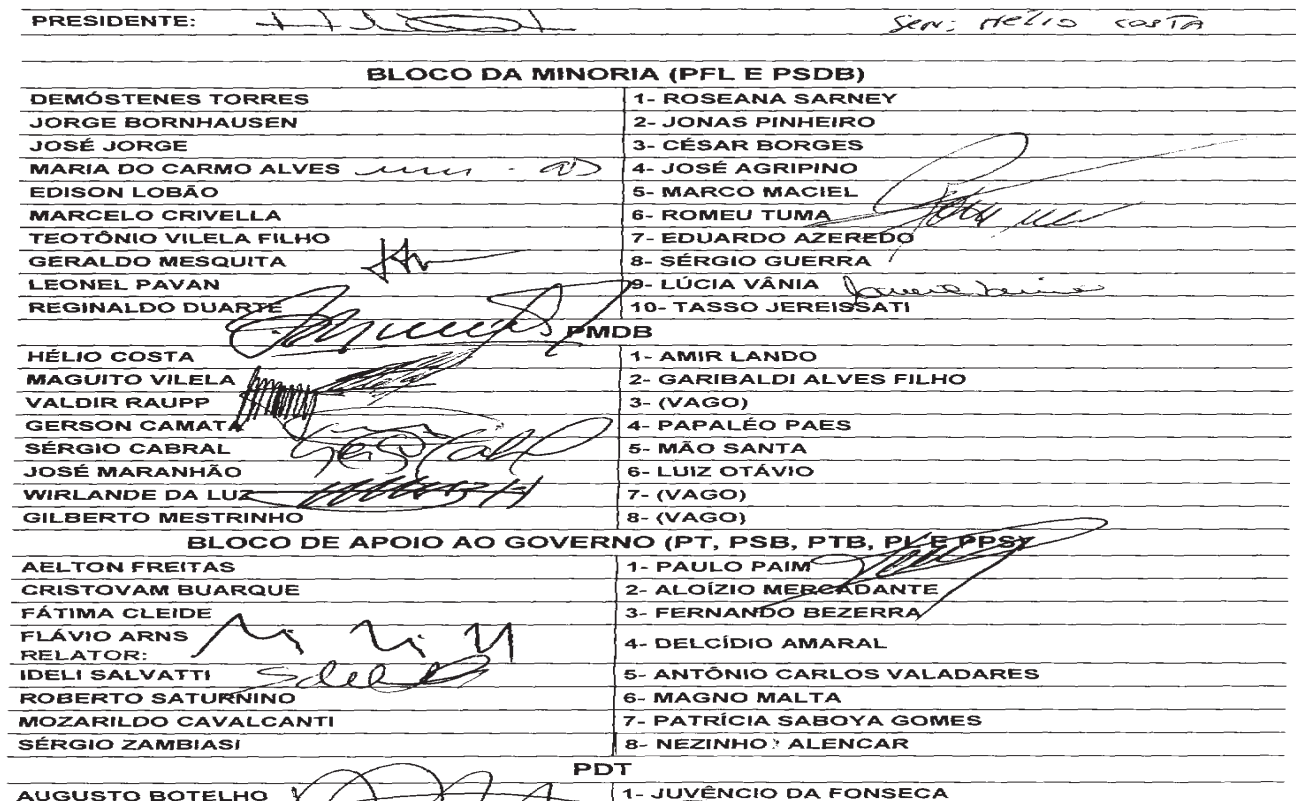 PRESIDENTE: SEN: HÉLIO COSTA
BLOCO DA MINORIA (PFL E PSDB)
DEMÓSTENES TORRES 1- ROSEANA SARNEY
JORGE BORNHAUSEN 2- JONAS PINHEIRO
JOSÉ JORGE 3- CÉSAR BORGES
MARIA DO CARMO ALVES 4- JOSÉ AGRIPINO
EDISON LOBÃO 5- MARCO MACIEL
MARCELO CRIVELLA 6- ROMEU TUMA
TEOTÔNIO VILELA FILHO 7- EDUARDO AZEREDO
GERALDO MESQUITA 8- SÉRGIO GUERRA
LEONEL PAVAN 9- LÚCIA VÂNIA
REGINALDO DUARTE 10- TASSO JEREISSATI
PMDB
HÉLIO COSTA 1- AMIR LANDO
MAGUITO VILELA 2- GARIBALDI ALVES FILHO
VALDIR RAUPP 3- (VAGO)
GERSON CAMATA 4- PAPALÉO PAES
SÉRGIO CABRAL 5- MÃO SANTA
JOSÉ MARANHÃO 6- LUIZ OTÁVIO
WIRLANDE DA LUZ 7- (VAGO)
GILBERTO MESTRINHO 8- (VAGO)
BLOCO DE APOIO AO GOVERNO (PT, PSB, PTB, PL E PPS)
AELTON FREITAS 1- PAULO PAIM
CRISTOVAM BUARQUE 2- ALOÍZIO MERCADANTE
FÁTIMA CLEIDE 3- FERNANDO BEZERRA
FLÁVIO ARNS
RELATOR: 4- DELCÍDIO AMARAL
IDELI SALVATTI 5- ANTÔNIO CARLOS VALADARES
ROBERTO SATURNINO 6- MAGNO MALTA
MOZARILDO CAVALCANTI 7- PATRÍCIA SABOYA GOMES
SÉRGIO ZAMBIASI 8- NEZINHO ALENCAR
PDT
AUGUSTO BOTELHO 1- JUVÊNCIO DA FONSECA